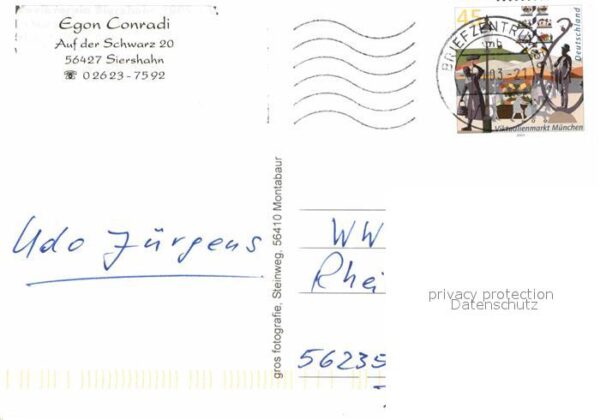 Egon Conradi
Auf der Schwarz 20
56427 Siershahn
☏ 02623-7592
45
Deutschland
BRIEFZENTRUM
mb
Viktualienmarkt München
Udo Jürgens
gros fotografie, Steinweg, 56410 Montabaur
WW
Rhei
56235
privacy protection
Datenschutz